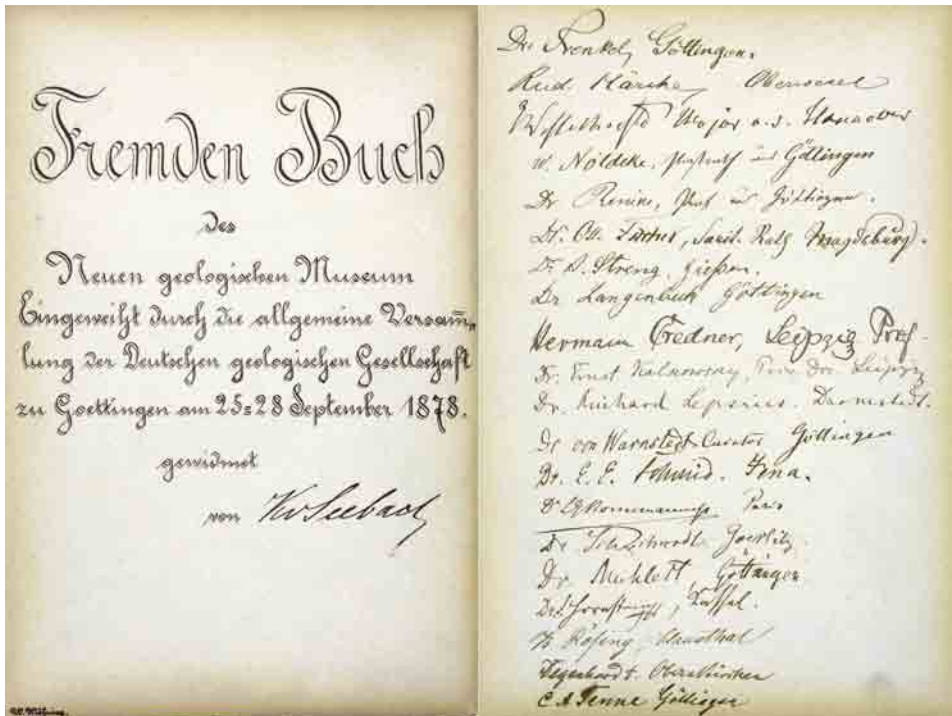 Fremden Buch
des
Neuen geologischen Museum
Eingeweiht durch die allgemeine Versam̄-
lung der Deutschen geologischen Gesellschaft
zu Goettingen am 25=28 September 1878.
gewidmet
von KvSeebach
Dr. Frenkel, Göttingen.
Rud. Oberwesel
Major a. d. Hannover
W. Nöldeke, Göttingen
Dr Göttingen.
Dr. Ott. Fischer, Sanit. Rath Magdeburg.
Dr. A. Streng, Giessen.
Dr Langenbeck Göttingen
Hermann Credner, Leipzig Prof.
Dr. Ernst Kalkowsky, Leipzig
Dr. Richard Lepsius. Darmstadt.
Dr von Warnstedt Curator Göttingen
Dr. E. E. Schmid. Jena.
Dr Paris
Dr Goerlitz.
Dr. Göttingen
Dr. Hornstein, Cassel.
Dr Rösing, Clausthal
Degenhardt.
C A Tenne Göttingen